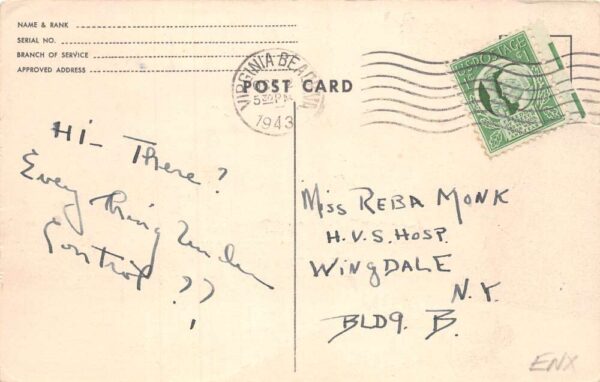 NAME & RANK
SERIAL NO.
BRANCH OF SERVICE
APPROVED ADDRESS
VIRGINIA BEACH, VA
5 30 PM
1943
POST CARD
POSTAGE
1
Hi- There?
Every thing Under
Control ??
Miss REBA MONK
H.V.S. HOSP.
WINGDALE
N.Y.
BLDG. B.
ENX